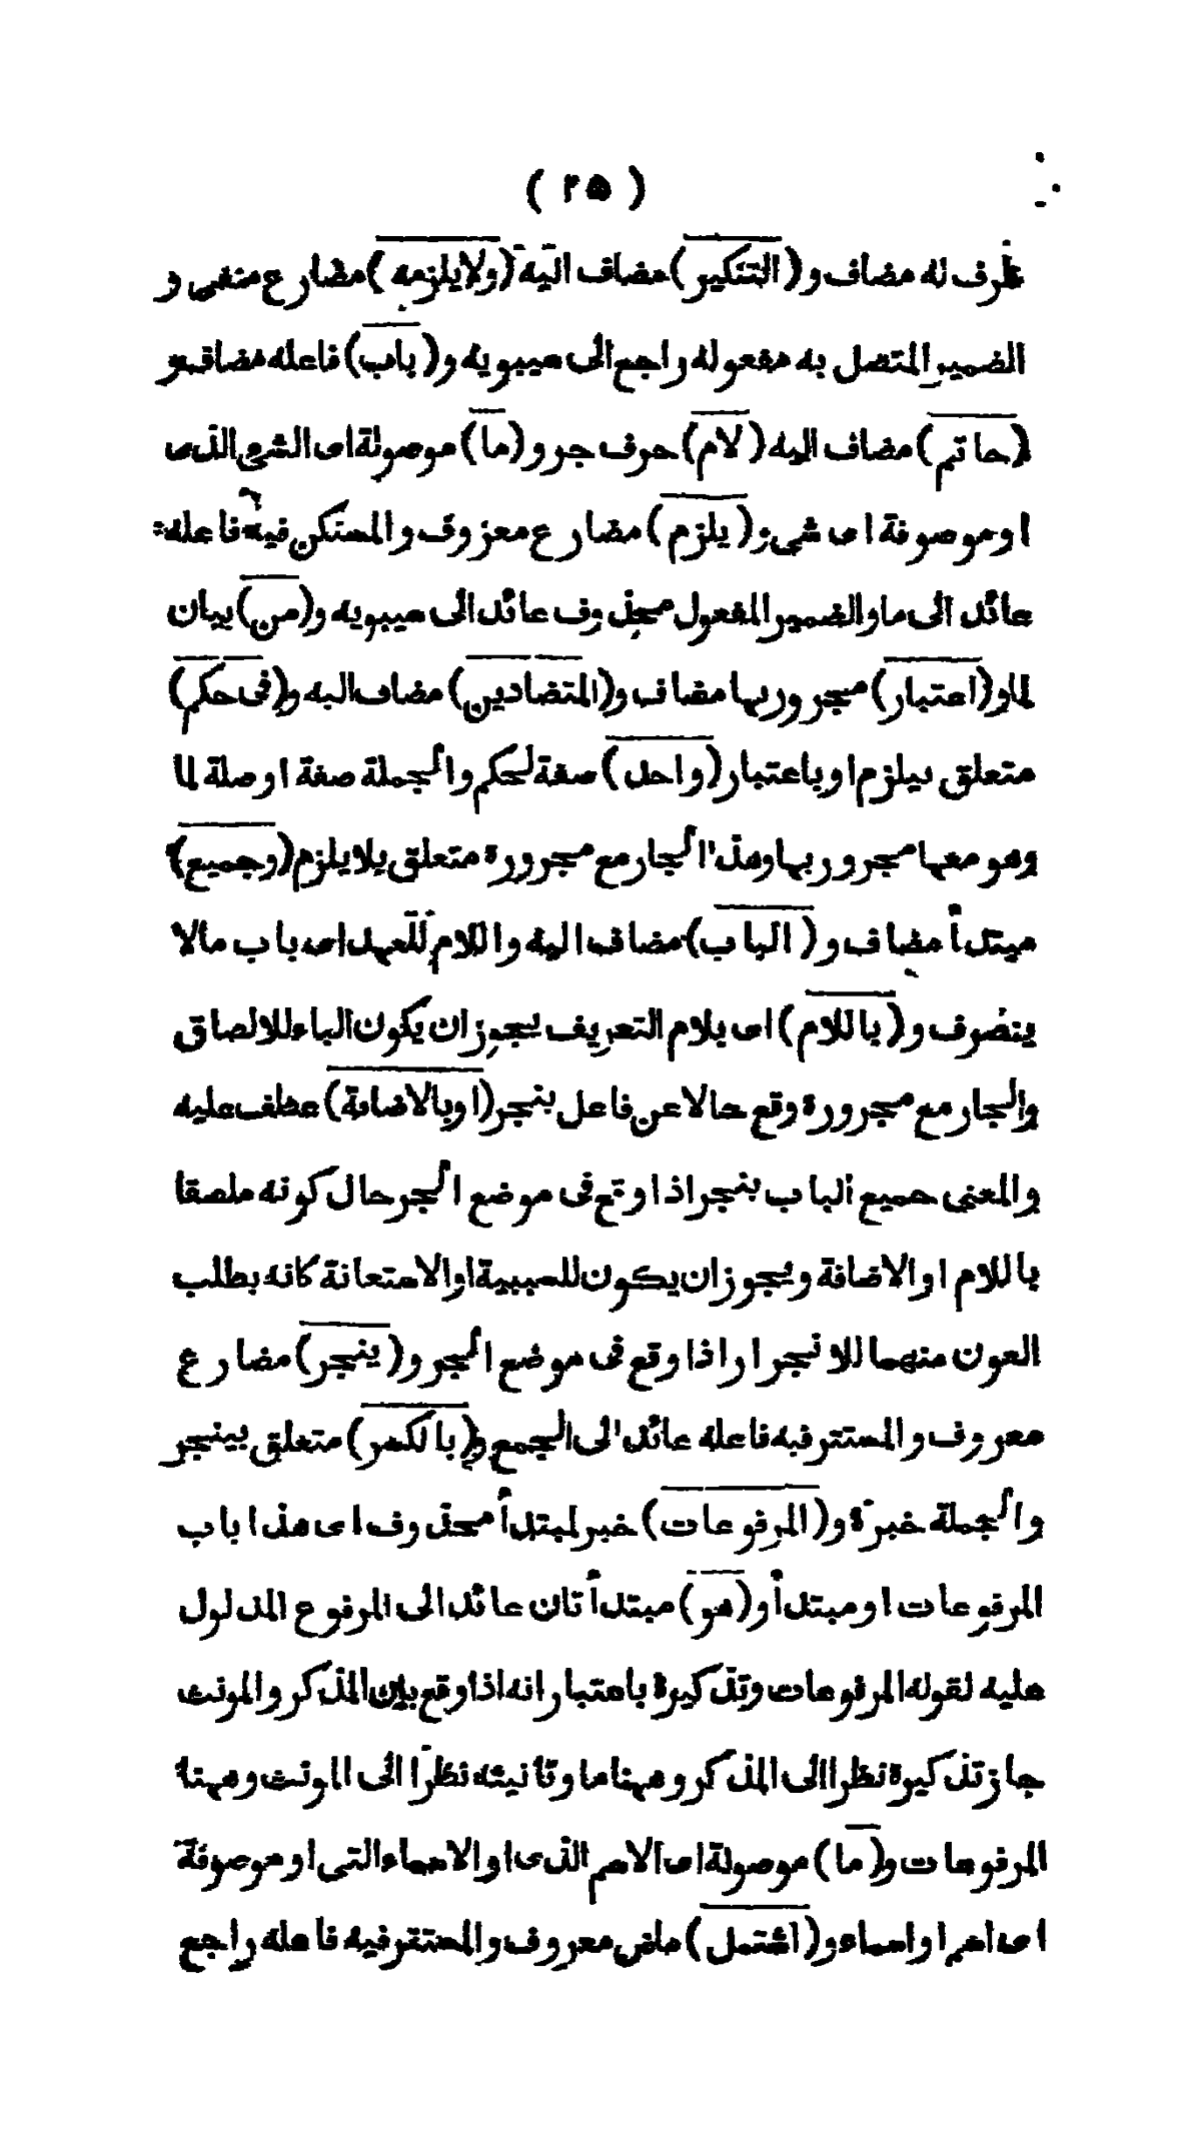 ( ٢٥ )
ظرف له مضاف و (التنكير) مضاف اليه (ولايلزمه) مضارع منفى و
الضمير المتصل به مفعوله راجع الى سيبويه و (باب) فاعله مضاف و
(حاتم) مضاف اليه (لام) حرف جر و (ما) موصولة اى الشئ الذى
او موصوفة اى شئ (يلزم) مضارع معروف والمستكن فيه فاعله
عائد الى ما والضمير المفعول محذوف عائد الى سيبويه و (من) بيان
لما و (اعتبار) مجرور بها مضاف و (المتضادين) مضاف اليه و (فى حكم)
متعلق بيلزم او باعتبار (واحد) صفة لحكم والجملة صفة او صلة لما
وهو معها مجرور بها وهذا الجار مع مجروره متعلق بلا يلزم (وجميع)
مبتدأ مضاف و (الباب) مضاف اليه واللام للعهد اى باب مالا
ينصرف و (باللام) اى بلام التعريف يجوز ان يكون الباء للالصاق
والجار مع مجروره وقع حالا عن فاعل ينجر (او بالاضافة) عطف عليه
والمعنى جميع الباب ينجر اذا وقع فى موضع الجر حال كونه ملصقا
باللام او الاضافة ويجوز ان يكون للسببية او الاستعانة كانه يطلب
العون منهما للانجرار اذا وقع فى موضع الجر و (ينجر) مضارع
معروف والمستتر فيه فاعله عائد الى الجمع و (بالكسر) متعلق بينجر
والجملة خبره و (المرفوعات) خبر لمبتدأ محذوف اى هذا باب
المرفوعات او مبتدأ و (هو) مبتدأ ثان عائد الى المرفوع المدلول
عليه لقوله المرفوعات وتذكيره باعتبار انه اذا وقع بين المذكر والمونث
جاز تذكيره نظرا الى المذكر وههنا ما وتانيثه نظرا الى المونث وههنا
المرفوعات و (ما) موصولة اى الاسم الذى او الاسماء التى او موصوفة
اى اسم او اسماء و (اشتمل) ماض معروف والمستتر فيه فاعله راجع